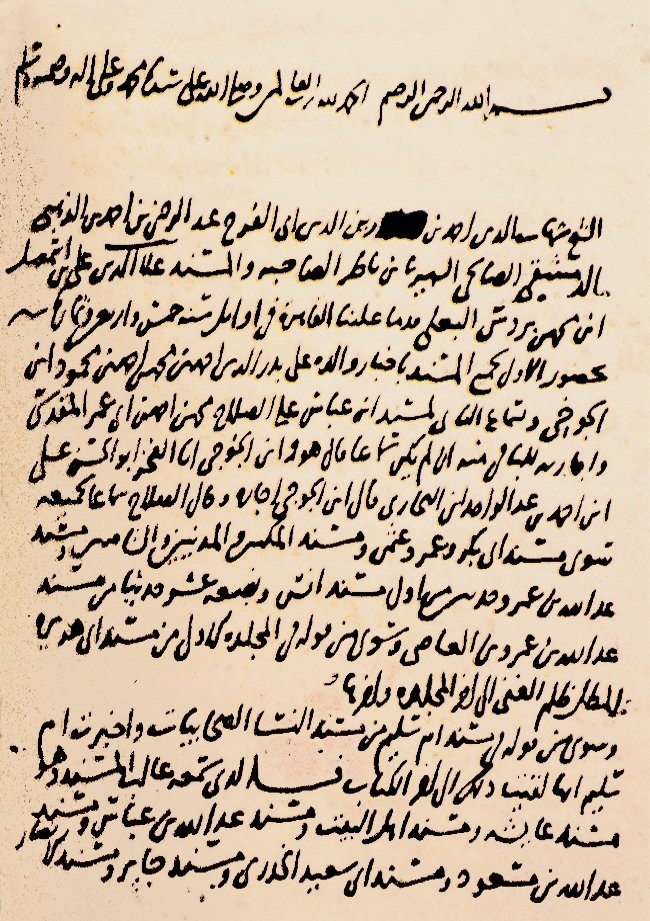 بسم الله الرحمن الرحيم الحمد لله رب العالمين وصلى الله على سيدنا محمد وعلى اله وصحبه وسلم
الشيخ شهاب الدين احمد بن وزين الدين ابي الفرج عبد الرحمن بن احمد الذهبي
الدمشقي الصالحي الشهير بابن ناظر الصاحبه والمسند علاء الدين علي بن
ابن بردس البعلي قدما علينا القاهرة في اوائل سنة خمس واربعين وثمانمايه
بحضور الاول لجميع المسند باخبار والده على بدر الدين احمد بن محمد بن احمد بن محمود ابن
الجوخي وسماع الثاني لمسند ابن عباس على الصلاح محمد بن احمد بن ابي عمر المقدسي
واجازته للباقي منه ان لم يكن سماعا قال هو وابن الجوخي انا الفخر ابو الحسن علي
ابن احمد بن عبد الواحد ابن البخاري قال ابن الجوخي اجازة وقال الصلاح سماعا لجميعه
سوى مسند ابي بكر وعمر وعثمن ومسند المكيين والمدنيين والشاميين ومسند
عبد الله بن عمر وحديثين من اول مسند انس وبضعة عشر حديثا من مسند
عبد الله بن عمرو بن العاصي وسوى من قوله في المجلده الاولى من مسند ابي هريرة
المطل ظلم الغني الى اخر المجلدة واخرها
وسوى من قوله في مسند ام سليم من مسند النسا الصحابيات واخبرت ام
سليم انها لقيت ذلك الى اخر الكتاب فالذي سمعه غالب المسند وهو
مسند عايشة ومسند اهل البيت ومسند عبد الله بن عباس ومسند
عبد الله بن مسعود ومسند ابي سعيد الخدري ومسند جابر ومسند الانصار